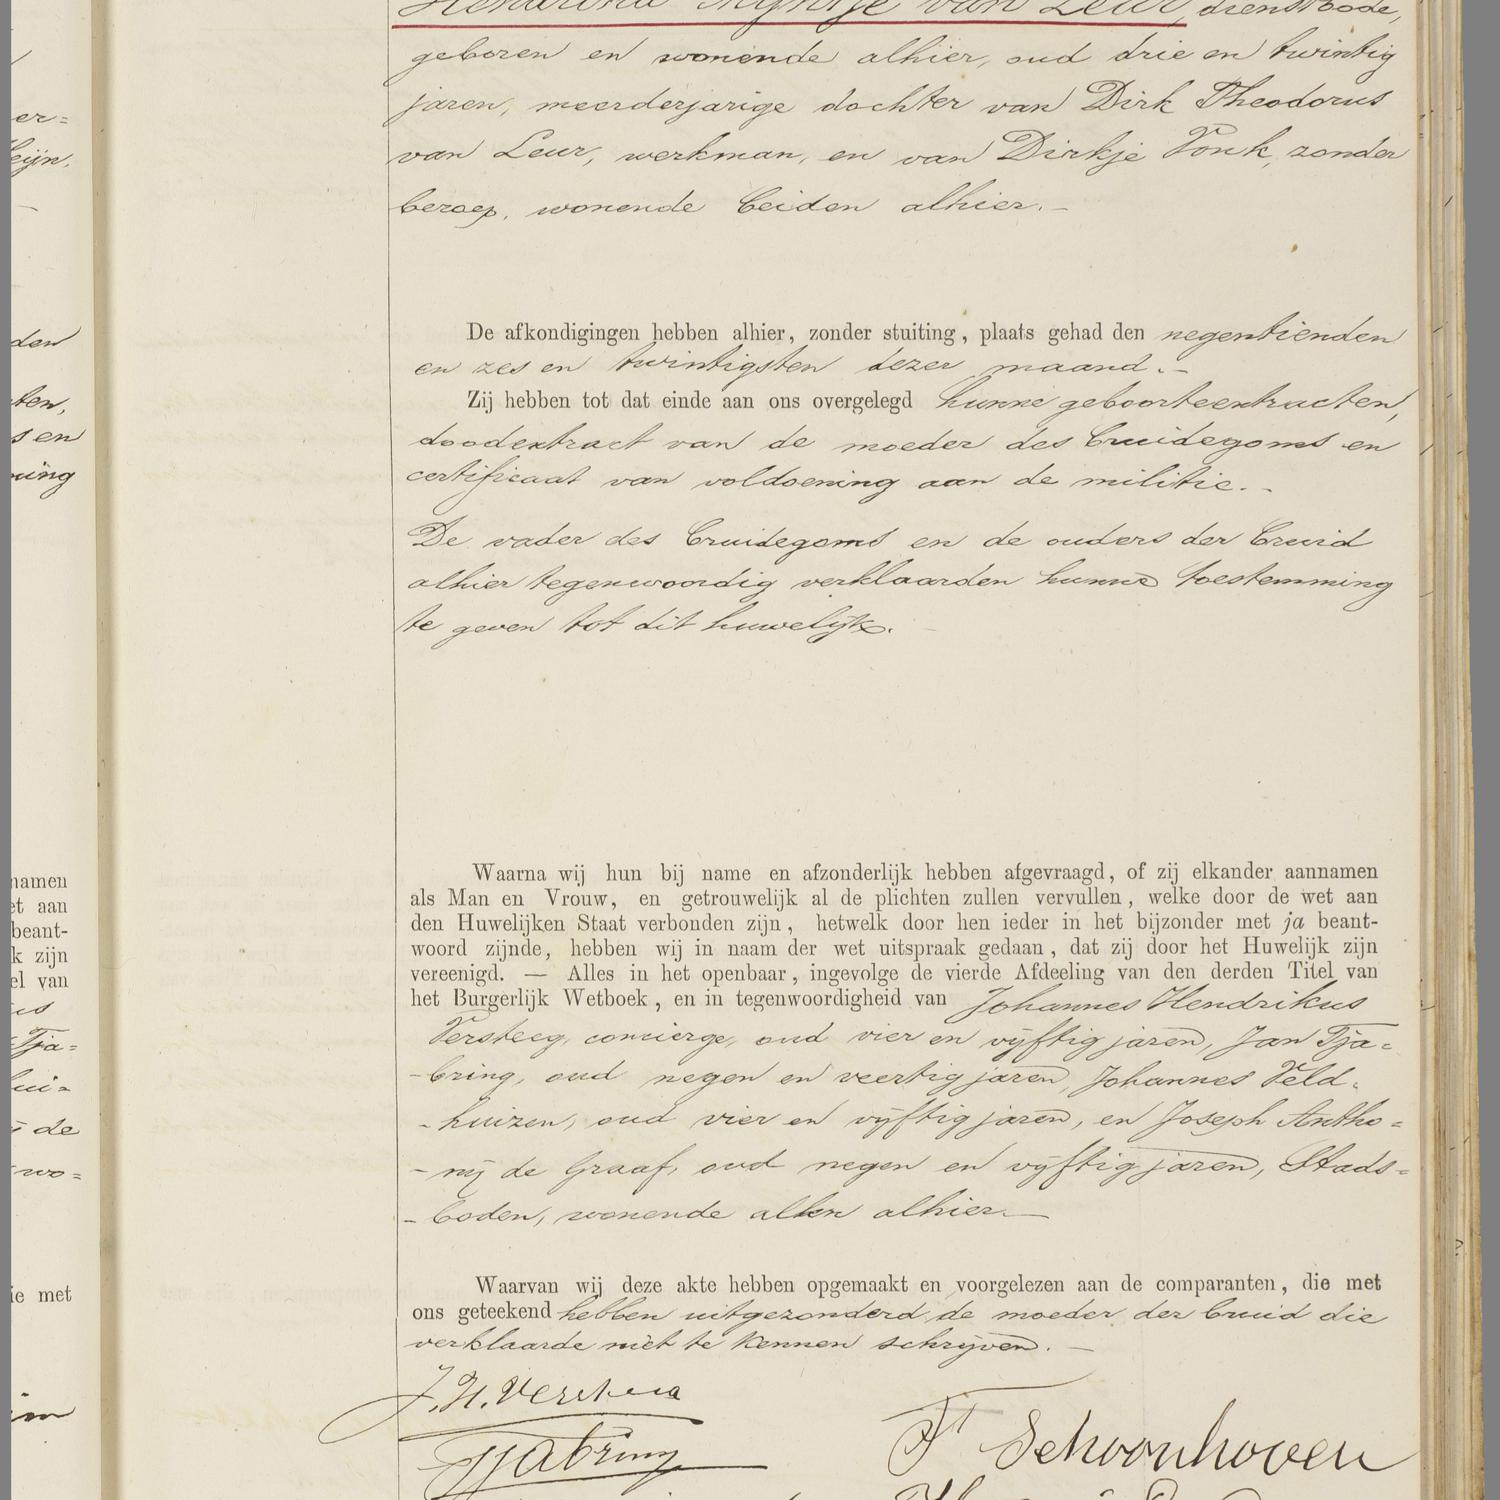 er=
eijn.
den
ten,
s en
ning
namen
et aan
beant-
k zijn
el van
us
Tja=
hui=
de
wo=
ie met
van Leur, dienstbode,
geboren en wonende alhier, oud drie en twintig
jaren, meerderjarige dochter van Dirk Theodorus
van Leur, werkman, en van Dirkje Vonk, zonder
beroep, wonende beiden alhier.—
De afkondigingen hebben alhier, zonder stuiting, plaats gehad den negentienden
en zes en twintigsten dezer maand.—
Zij hebben tot dat einde aan ons overgelegd hunne geboorteextracten,
doodextract van de moeder des bruidegoms en
certificaat van voldoening aan de militie.—
De vader des bruidegoms en de ouders der bruid
alhier tegenwoordig verklaarden hunne toestemming
te geven tot dit huwelijk.
Waarna wij hun bij name en afzonderlijk hebben afgevraagd, of zij elkander aannamen
als Man en Vrouw, en getrouwelijk al de plichten zullen vervullen, welke door de wet aan
den Huwelijken Staat verbonden zijn, hetwelk door hen ieder in het bijzonder met ja beant-
woord zijnde, hebben wij in naam der wet uitspraak gedaan, dat zij door het Huwelijk zijn
vereenigd. — Alles in het openbaar, ingevolge de vierde Afdeeling van den derden Titel van
het Burgerlijk Wetboek, en in tegenwoordigheid van Johannes Hendrikus
Versteeg, concierge, oud vier en vijftig jaren, Jan Tja=
-bring, oud negen en veertig jaren, Johannes Veld-
-huizen, oud vier en vijftig jaren, en Joseph Antho=
-nij de Graaf, oud negen en vijftig jaren, Stads=
-boden, wonende allen alhier.—
Waarvan wij deze akte hebben opgemaakt en voorgelezen aan de comparanten, die met
ons geteekend hebben uitgezonderd de moeder der bruid die
verklaarde niet te kennen schrijven.—
J.H. Versteeg
Tjabring
Schoonhoven